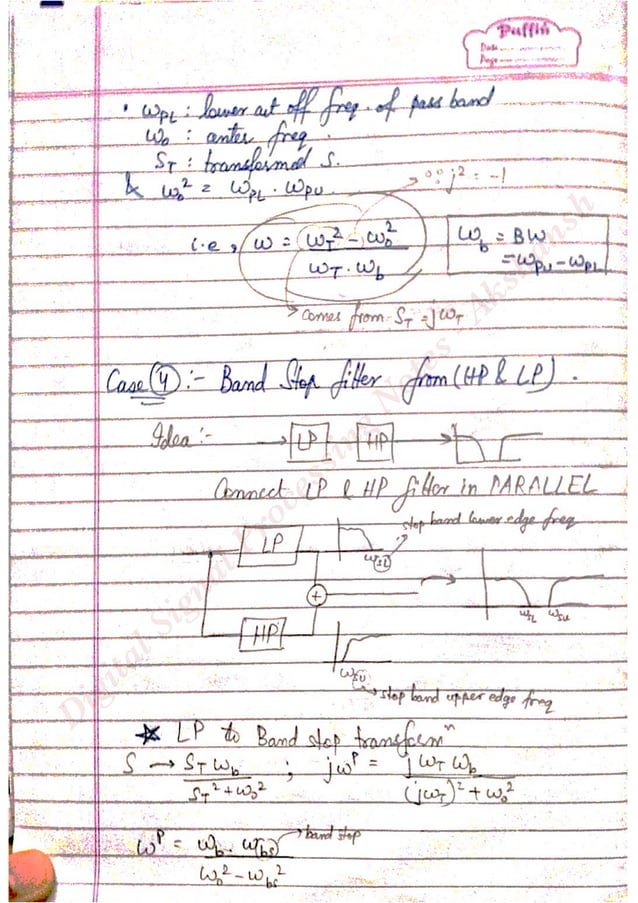 Puffin
Date
Page
• ω_PL : lower cut off freq. of pass band
ω₀ : center freq.
S_T : transformed S.
& ω₀² = ω_PL · ω_PU
∵ j² = -1
i.e, ω = (ω_T² - ω₀²) / (ω_T · ω_b)
ω_b = BW
= ω_PU - ω_PL
comes from S_T = jω_T
Case (4) :- Band Stop filter from (HP & LP).
Idea :- → LP HP →
Connect LP & HP filter in PARALLEL
LP
ω_SL
stop band lower edge freq
+
ω_SL ω_SU
HP
ω_SU
stop band upper edge freq
★ LP to Band stop transformⁿ
S → S_T ω_b / (S_T² + ω₀²) ; jω^P = jω_T ω_b / ((jω_T)² + ω₀²)
ω^P = ω_b · ω_bs / (ω₀² - ω_bs²) → band stop
Digital Signal Processing Notes - Akshansh